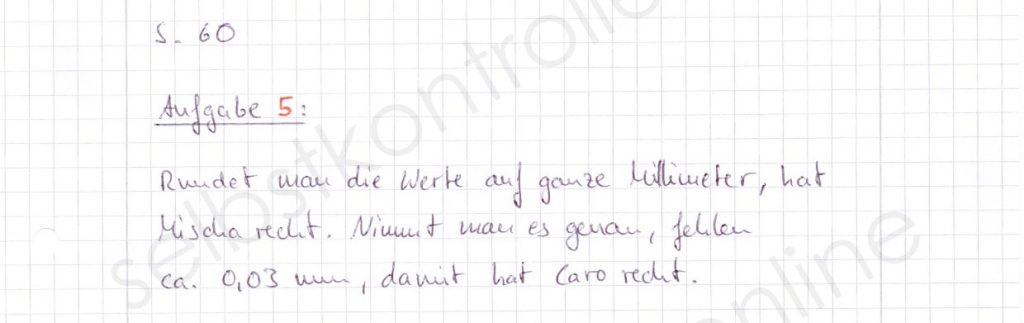 S. 60
Aufgabe 5:
Rundet man die Werte auf ganze Millimeter, hat
Mischa recht. Nimmt man es genau, fehlen
ca. 0,03 mm, damit hat Caro recht.
selbstkontrolle
online